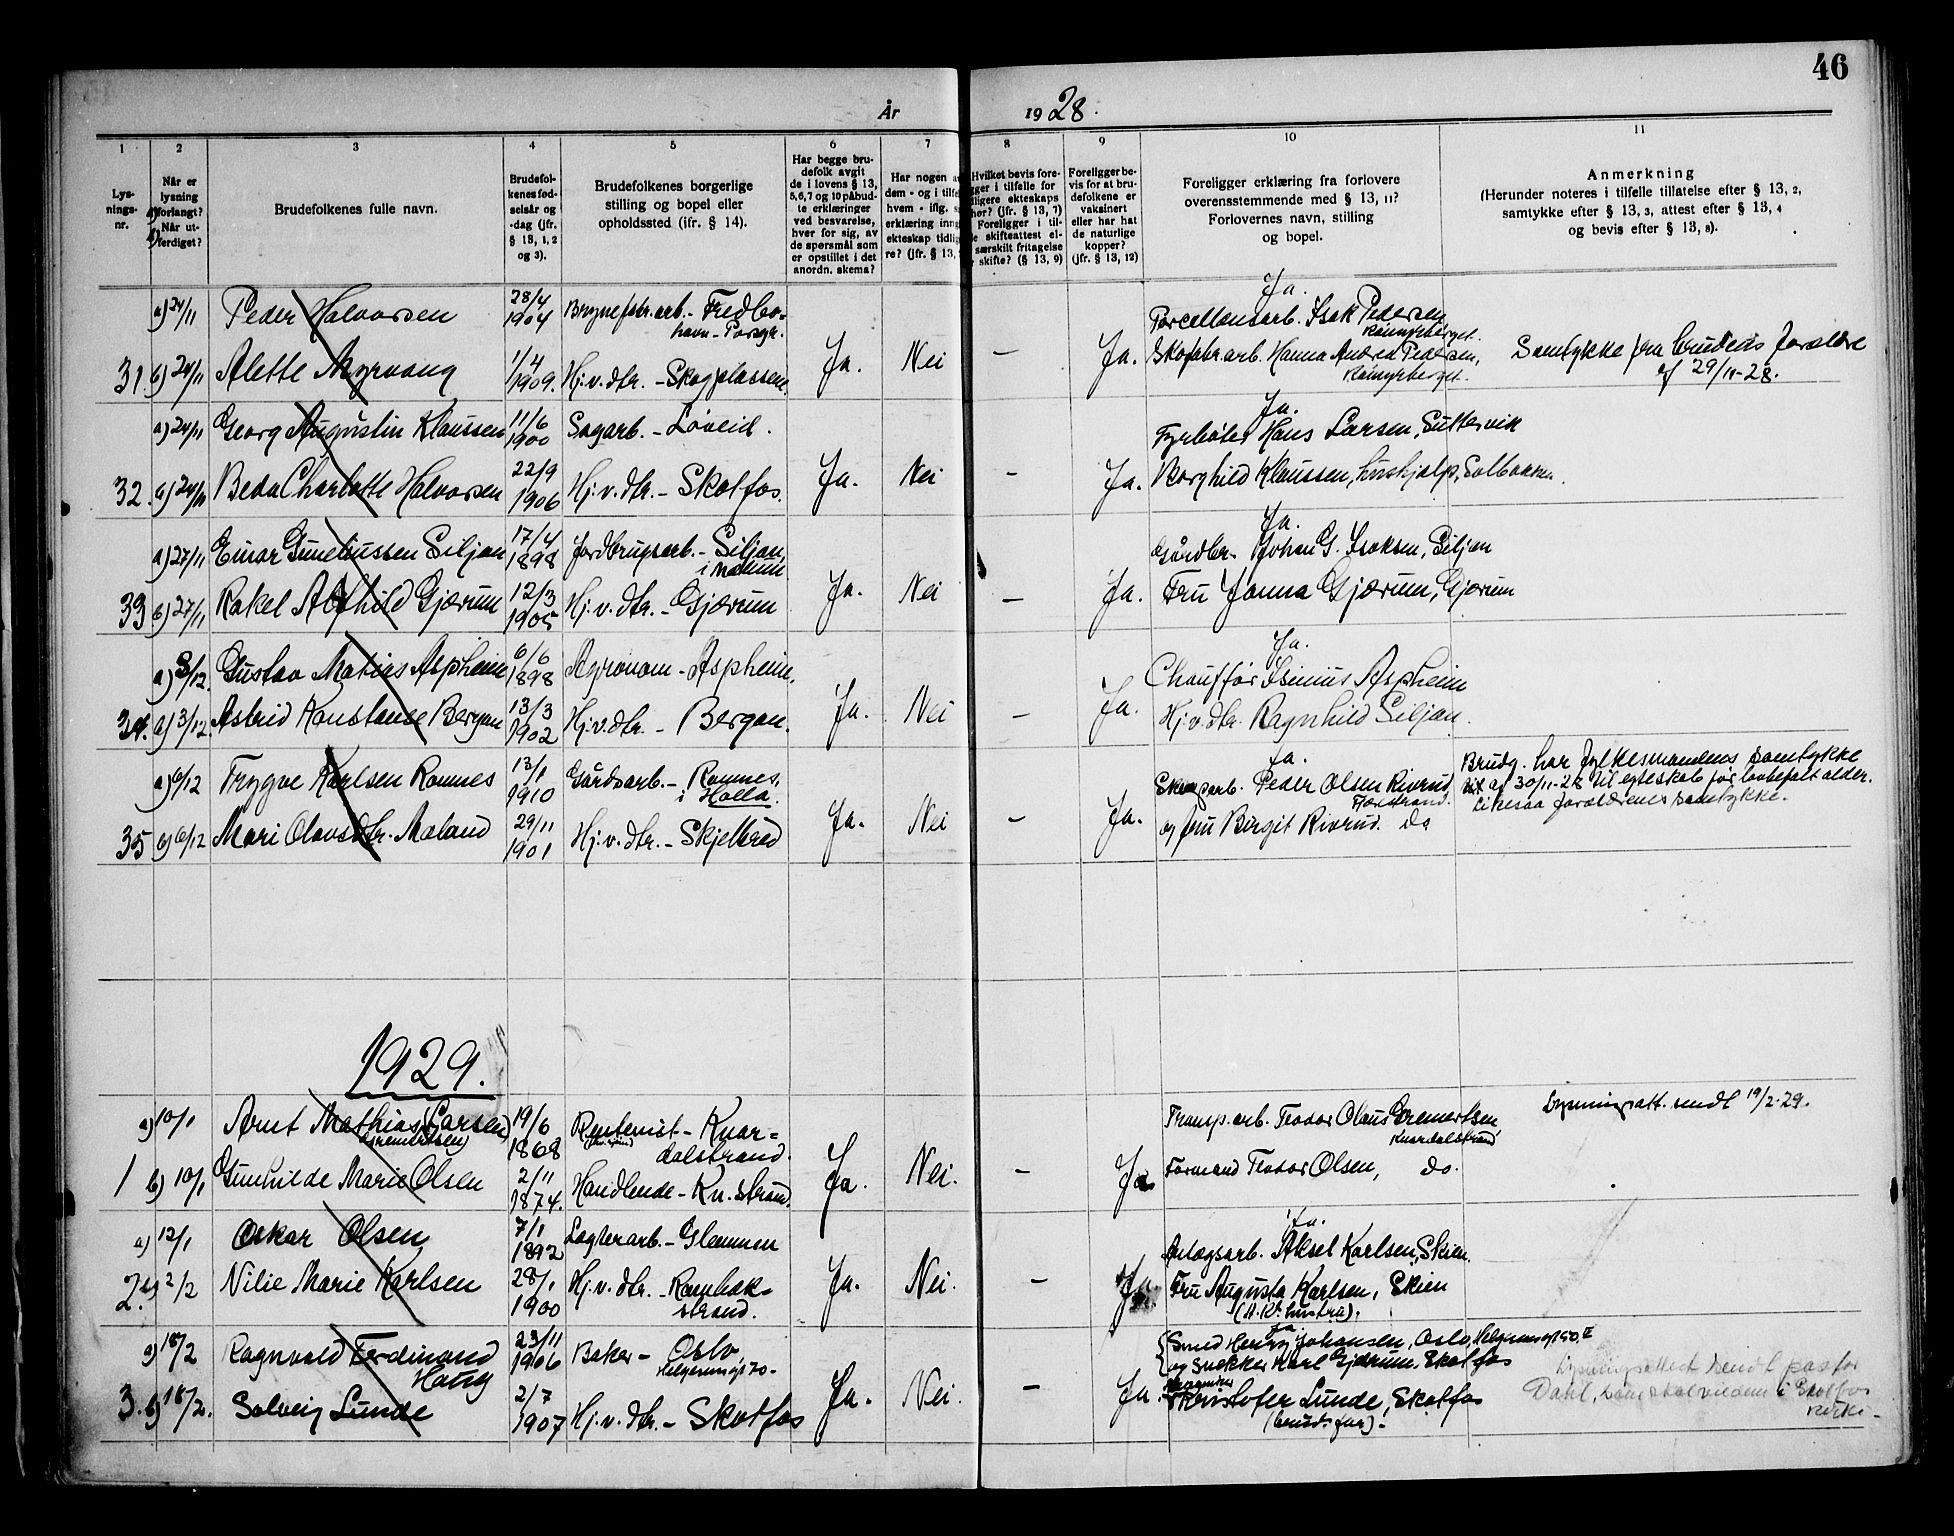 46
År 1928.
1 2 3 4 5 6 7 8 9 10 11
Lys-
nings-
nr.
Når er
lysning
forlangt?
Når ut-
ferdiget?
Brudefolkenes fulle navn.
Brudefol-
kenes fød-
selsår og
-dag (jfr.
§ 13, 1, 2
og 3).
Brudefolkenes borgerlige
stilling og bopel eller
opholdssted (ifr. § 14).
Har begge bru-
defolk avgit
de i lovens § 13,
5,6,7 og 10 påbud-
te erklæringer
ved besvarelse,
hver for sig, av
de spørsmål som
er opstillet i det
anordn. skema?
Har nogen a
dem - og i tilfe
hvem - iflg. s
erklæring inng
ekteskap tidli
re? (jfr. § 13,
Hvilket bevis fore-
gger i tilfelle for
dligere ekteskaps
hør? (jfr. § 13, 7)
Foreligger i til-
e skifteattest el-
særskilt fritagelse
skifte? (§ 13, 9)
Foreligger be-
vis for at bru-
defolkene er
vaksinert
eller har hat
de naturlige
kopper?
(jfr. § 13, 12)
Foreligger erklæring fra forlovere
overensstemmende med § 13, 11?
Forlovernes navn, stilling
og bopel.
Anmerkning
(Herunder noteres i tilfelle tillatelse efter § 13, 2,
samtykke efter § 13, 3, attest efter § 13, 4
og bevis efter § 13, 8).
a) 24/11 Peder Halvorsen 28/4 1904 Brynefabr.arb. - Fredbo-
havn - Porsgr.
Ja.
Porcellensarb. Isak Pedersen
31 b) 24/11 Alette Myrvang 1/4 1909. Hj.v.dtr. - Skogplassen. Ja. Nei - Ja. Skofabr.arb. Hanna Andrea Pedersen,
Samtykke fra brudens foreldre
af 29/11-28.
a) 24/11 Georg Augustin Klaussen 11/6 1900 Sagarb. - Løveid.
Ja.
Fyrbøter Hans Larsen, Guttervik
32. b) 24/11 Beda Charlotte Halvorsen 22/9 1906 Hj.v.dtr. - Skotfos. Ja. Nei - Ja. Borghild Klaussen, hushjælp, Solbakken.
a) 27/11 Einar Guneliussen Siljan 17/4 1898 Jordbrugsarb. - Siljan
i Mælum
Ja.
Gårdbr. Johan G. Isaksen, Siljan
33 b) 27/11 Rakel Alfhild Gjærum 12/3 1905 Hj.v.dtr. - Gjærum Ja. Nei - Ja. Fru Janna Gjærum, Gjærum
a) 3/12. Gustav Matias Aspheim 6/6 1898 Agronom - Aspheim.
Ja.
Chauffør Isinius Aspheim
34. b) 3/12. Astrid Konstanse Bergan 13/3 1902 Hj.v.dtr. - Bergan. Ja. Nei - Ja. Hj.v.dtr. Ragnhild Siljan.
a) 6/12 Trygve Karlsen Romnes 13/1 1910 Gårdsarb. - Romnes
i Holla.
Ja.
Skogsarb. Peder Olsen Riverud
Fjærestrand.
Brudg. har fylkesmandens samtykke
af 30/11-28 til egteskab før lovbefalt alder.
Likesaa forældrenes samtykke.
35 b) 6/12 Mari Olavsdtr. Mæland 29/11 1901 Hj.v.dtr. - Skjelbred Ja. Nei - Ja. og fru Birgit Riverud. do
1929.
a) 10/1 Arnt Mathias Larsen
(Gremertsen)
19/6 1868 Rentenist - Knar-
dalstrand.
Transp.arb. Teodor Olaus Gremertsen
Knardalstrand
Lysningsatt. sendt 19/2-29.
1 b) 10/1 Gunhilde Marie Olsen 2/11 1874. Handlende - Kn. strand. Ja. Nei. - Ja Formand Teodor Olsen, do.
a) 12/1 Oskar Olsen 7/1 1892 Lagterarb. - Glemmen
Ja.
Anlægsarb. Aksel Karlsen, Skien.
2. b) 2/2 Nilie Marie Karlsen 28/1 1900 Hj.v.dtr. - Rambæk-
strand.
Ja. Nei. - Ja. Fru Augusta Karlsen, Skien
(A. K's hustru).
a) 18/2 Ragnvald Ferdinand
Haug
23/11 1906 Baker - Oslo
Helgesensgt 70 -
Ja
Smed Henry Johansen, Oslo, Helgesensgt 50 II
og Snekker Karl Gjærum, Skotfos
3. b) 18/2. Solveig Lunde 2/7 1907 Hj.v.dtr. - Skotfos Ja. Nei. - Ja. Kristofer Lunde, Skotfos
(bruds far).
Lysningsattest sendt pastor
Dahl, som skal vie dem i Skotfos
kirke -